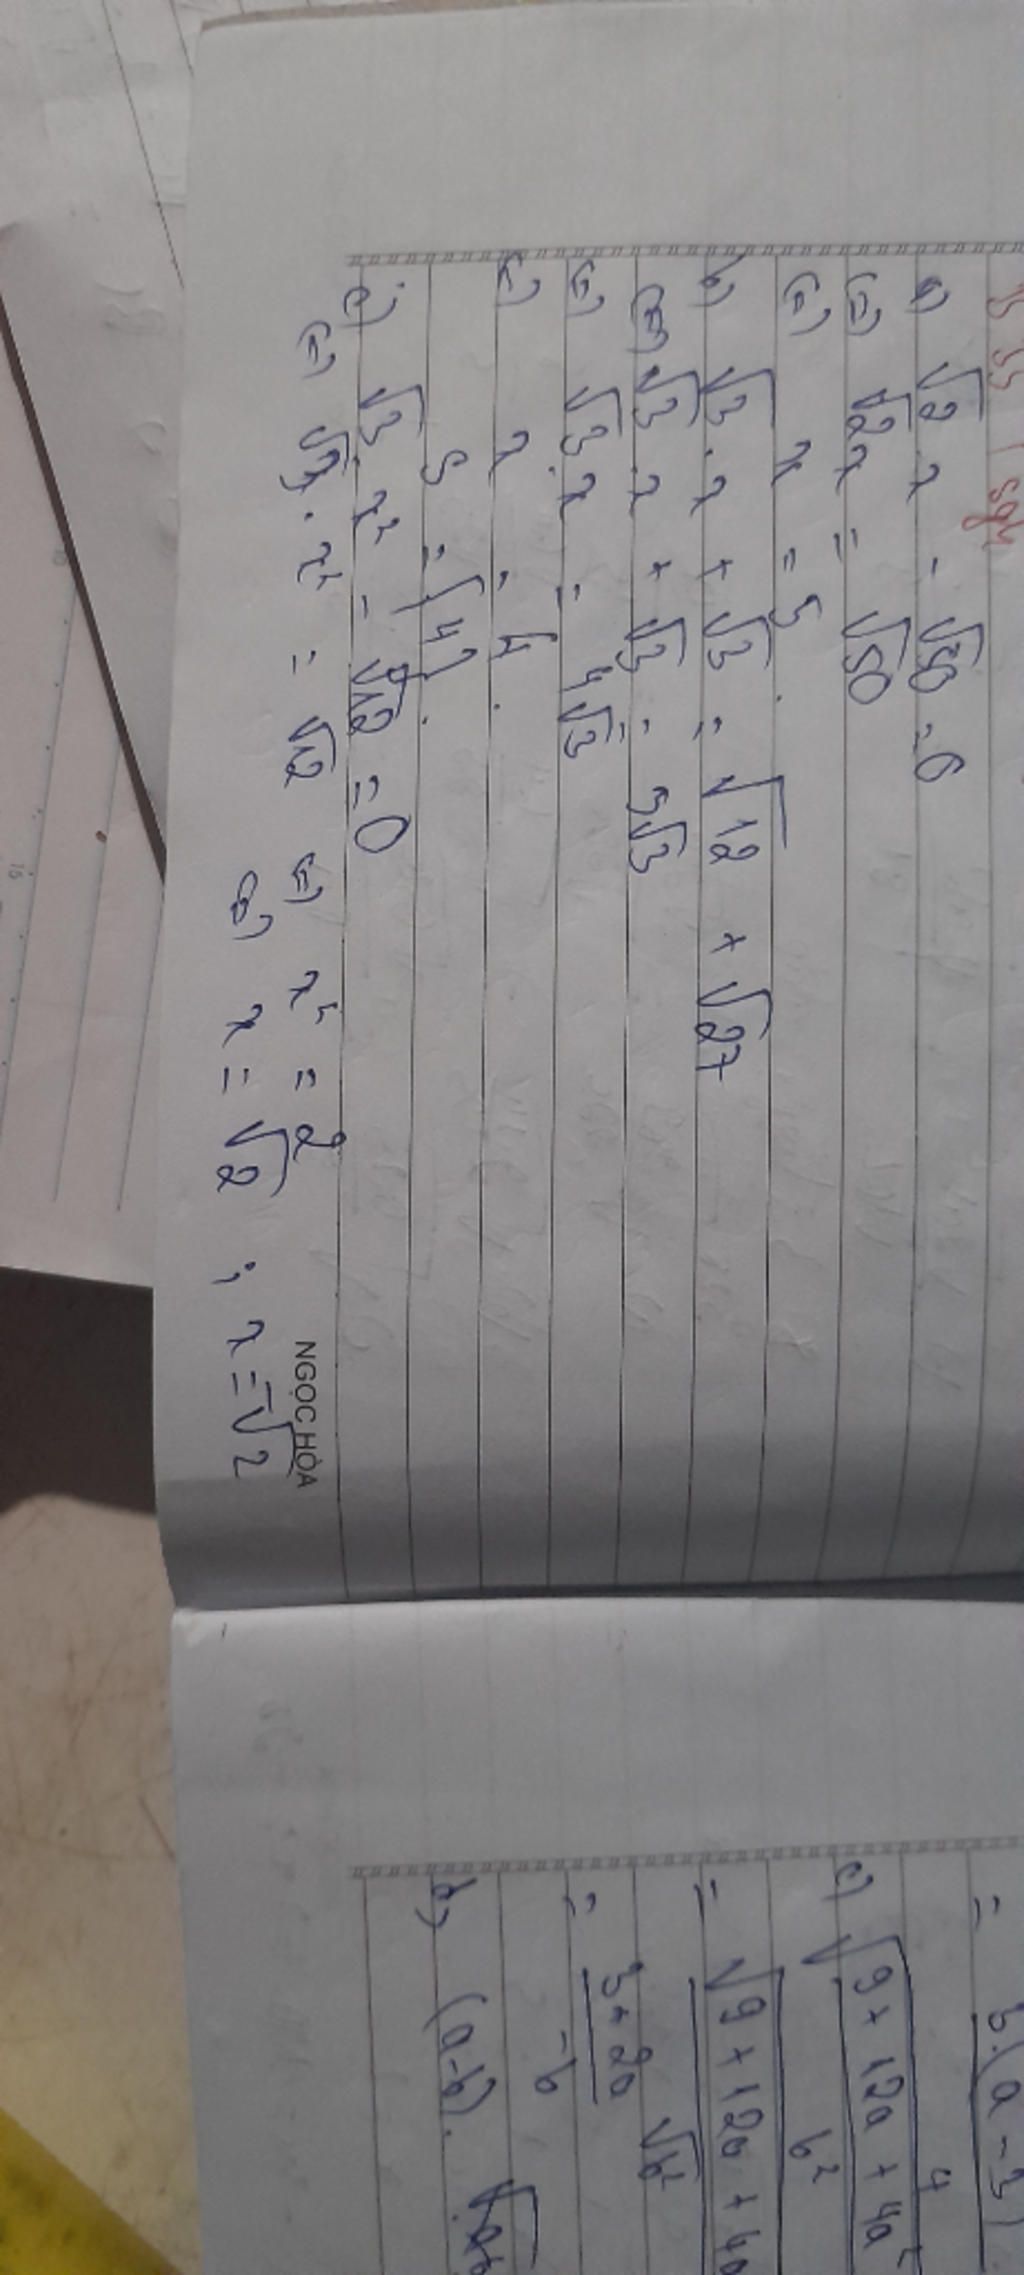 B 33 / sgk
a) √2 x - √50 = 0
(=) √2 x = √50
(=) x = 5.
b) √3 . x + √3 = √12 + √27
(=) √3 . x + √3 = 5√3
(=) √3 . x = 4√3
(=) x = 4.
S = {4}.
c) √3 . x² - √12 = 0
(=) √3 . x² = √12 (=) x² = 2
(=) x = √2 ; x = -√2
NGỌC HÒA
= 3.(a-3)
4
c) √9 + 12a + 4a²
b²
= √9 + 12a + 4a
√b²
= 3 + 2a
-b
d) (a-b).